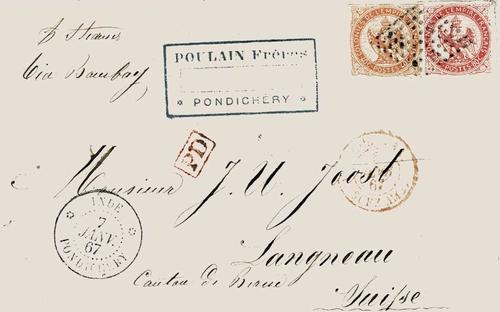 p Steamer
Via Bombay
POULAIN Frères
* PONDICHÉRY *
COLONIES DE L'EMPIRE FRANÇAIS
POSTES
COLONIES DE L'EMPIRE FRANÇAIS
POSTES
PD
Monsieur J. U. Joost
INDE
7
JANV.
67
PONDICHERY
67
Langneau
Canton de Berne
Suisse